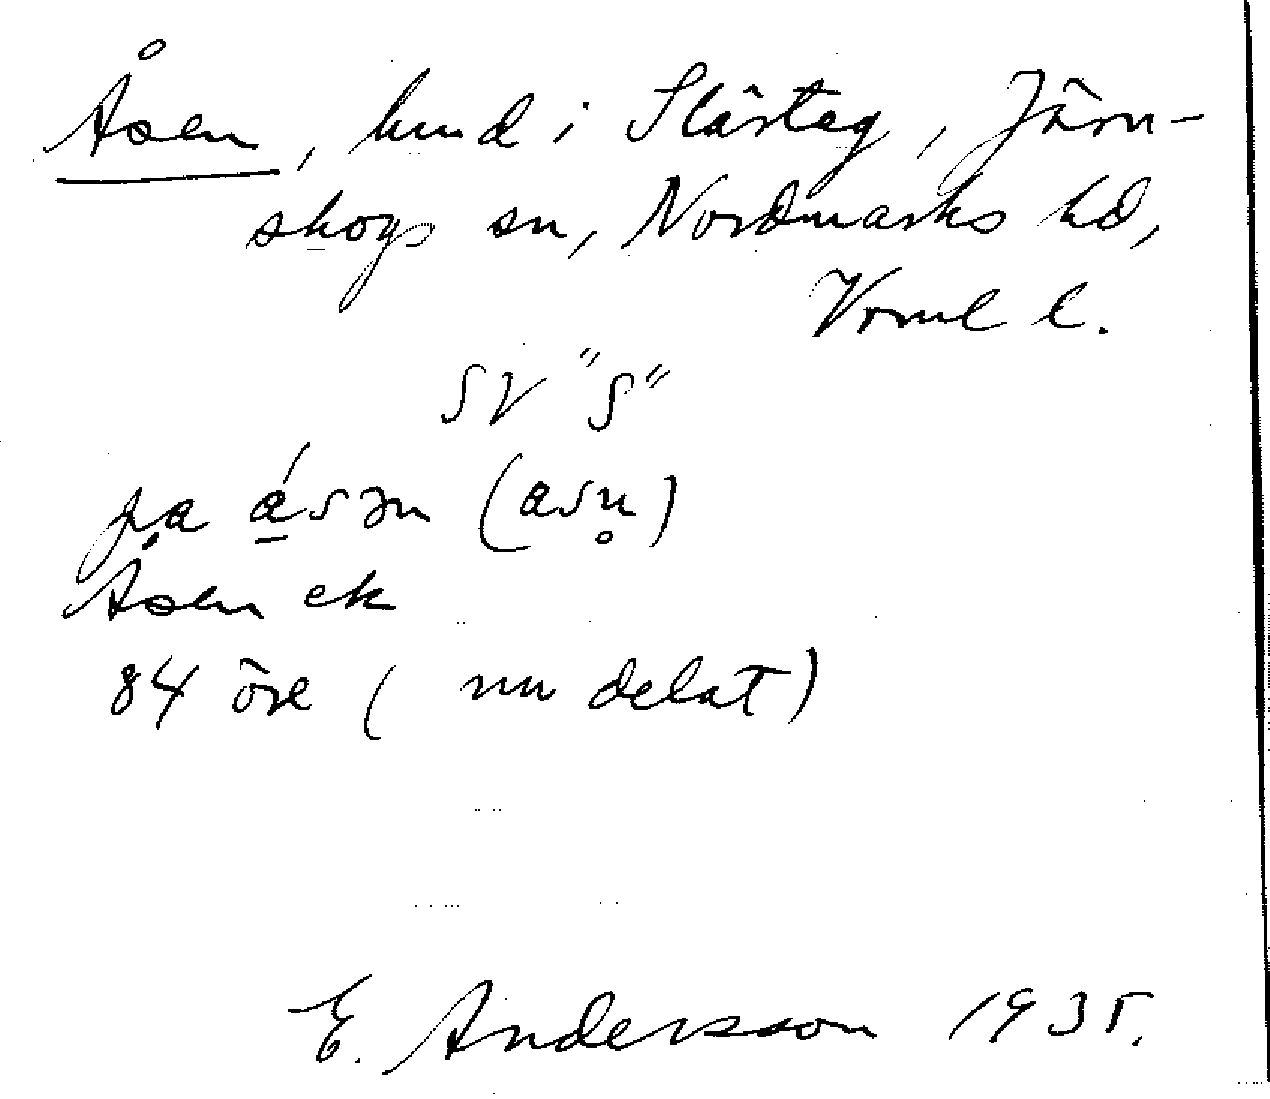 Åsen, hmd i Slärteg, Järn-
skogs sn, Nordmarks hd,
Verml l.
SV "S"
pa ásən (asn̥)
Åsen ek
84 öre ( nu delat)
E. Andersson 1935.